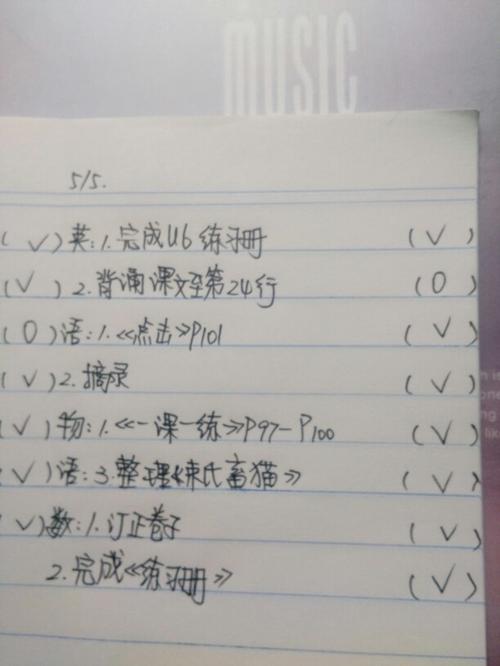 MUSIC
5/5.
(√)英:1.完成U6练习册 (√)
(√)2.背诵课文至第24行 (O)
(O)语:1.《点击》P101 (√)
(√)2.摘录 (√)
(√)物:1.《一课一练》P97-P100 (√)
(√)语:3.整理《束氏畜猫》 (√)
(√)数:1.订正卷子 (√)
2.完成《练习册》 (√)